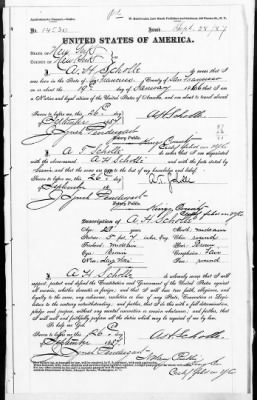 No. 14530 Issued Sept. 28 1887
UNITED STATES OF AMERICA.
STATE OF New York
COUNTY OF New York
I, A. H. Scholle do swear that I was
born in the State of San Francisco County of San Francisco
on or about the 19th day of January 1866 that I am
a Native and loyal citizen of the United States of America, and am about to travel abroad
Sworn to before me, this 26
day of September 1887
A. H. Scholle
J Lynch Pendergast
Notary Public.
Kings County
I, A. T. Scholle do swear that I am acquainted
with the above-named A. H. Scholle and with the facts stated
by him, and that the same are true to the best of my knowledge and belief.
Sworn to before me, this 26
day of September 18
J Lynch Pendergast
Notary Public.
Kings County
Description of A. H. Scholle
Age: 21 years Mouth: medium
Stature: 5 feet inches, Eng. Chin: round
Forehead: medium Hair: Brown
Eyes: Brown Complexion: Fair
Nose: Face: round
I, A. H. Scholle do solemnly swear that I will
support, protect and defend the Constitution and Government of the United States against
all enemies, whether domestic or foreign; and that I will bear true faith, allegiance, and
loyalty to the same, any ordinance, resolution or law of any State, Convention or Legislature
to the contrary notwithstanding; and further, that I do this with a full determination,
pledge and purpose, without any mental reservation or evasion whatsoever; and further,
that I will well and faithfully perform all the duties which may be required of me by law.
So help me God.
Sworn to before me, this 26
day of September 1887
A. H. Scholle
J Lynch Pendergast
Notary Public
Kings County